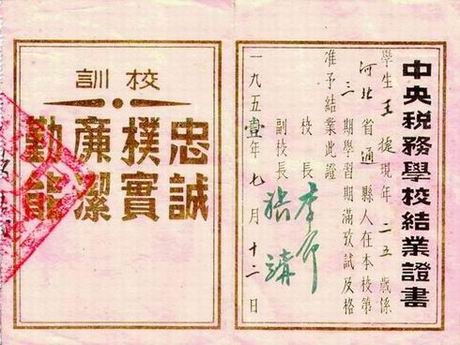 中央税務學校結業證書
學生王現年二五歲係
河北省通縣人在本校第
三期學習期滿攷試及格
准予結業此證
校長
副校長
一九五壹年七月十二日
校訓
忠誠
樸實
廉潔
勤能